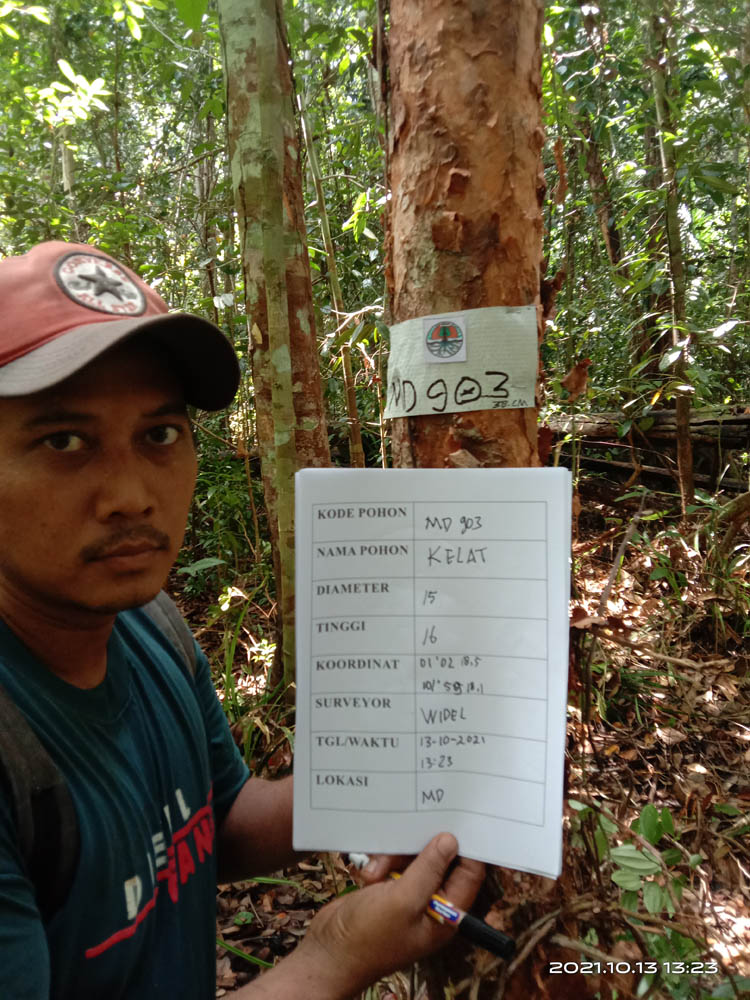 MD 903
38.CM
KODE POHON MD 903
NAMA POHON KELAT
DIAMETER 15
TINGGI 16
KOORDINAT 01°02 18.5
101°59 18.1
SURVEYOR WIDEL
TGL/WAKTU 13-10-2021
13:23
LOKASI MD
2021.10.13 13:23